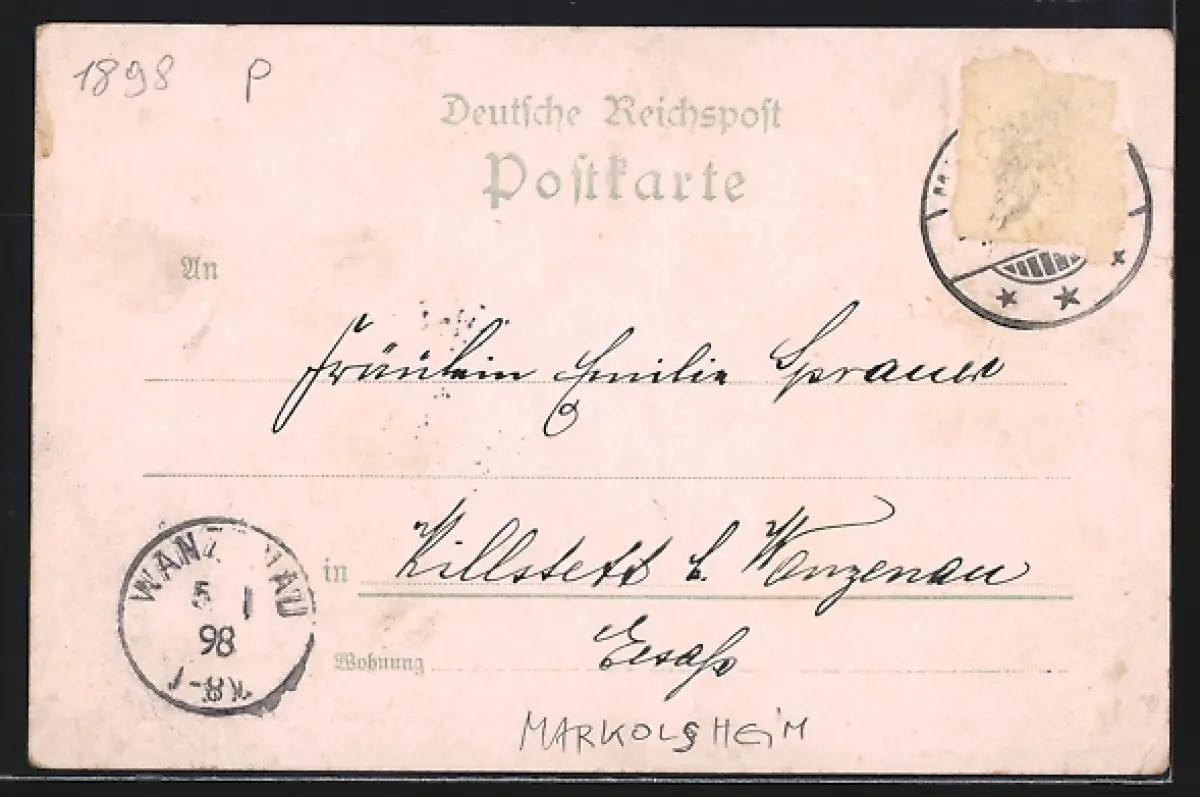 1898 P
Deutsche Reichspost
Postkarte
An
Fräulein Emilie Sprauer
in Killstett b. Wanzenau
Wohnung Elsaß
WANZENAU
5 1
98
MARKOLSHEIM